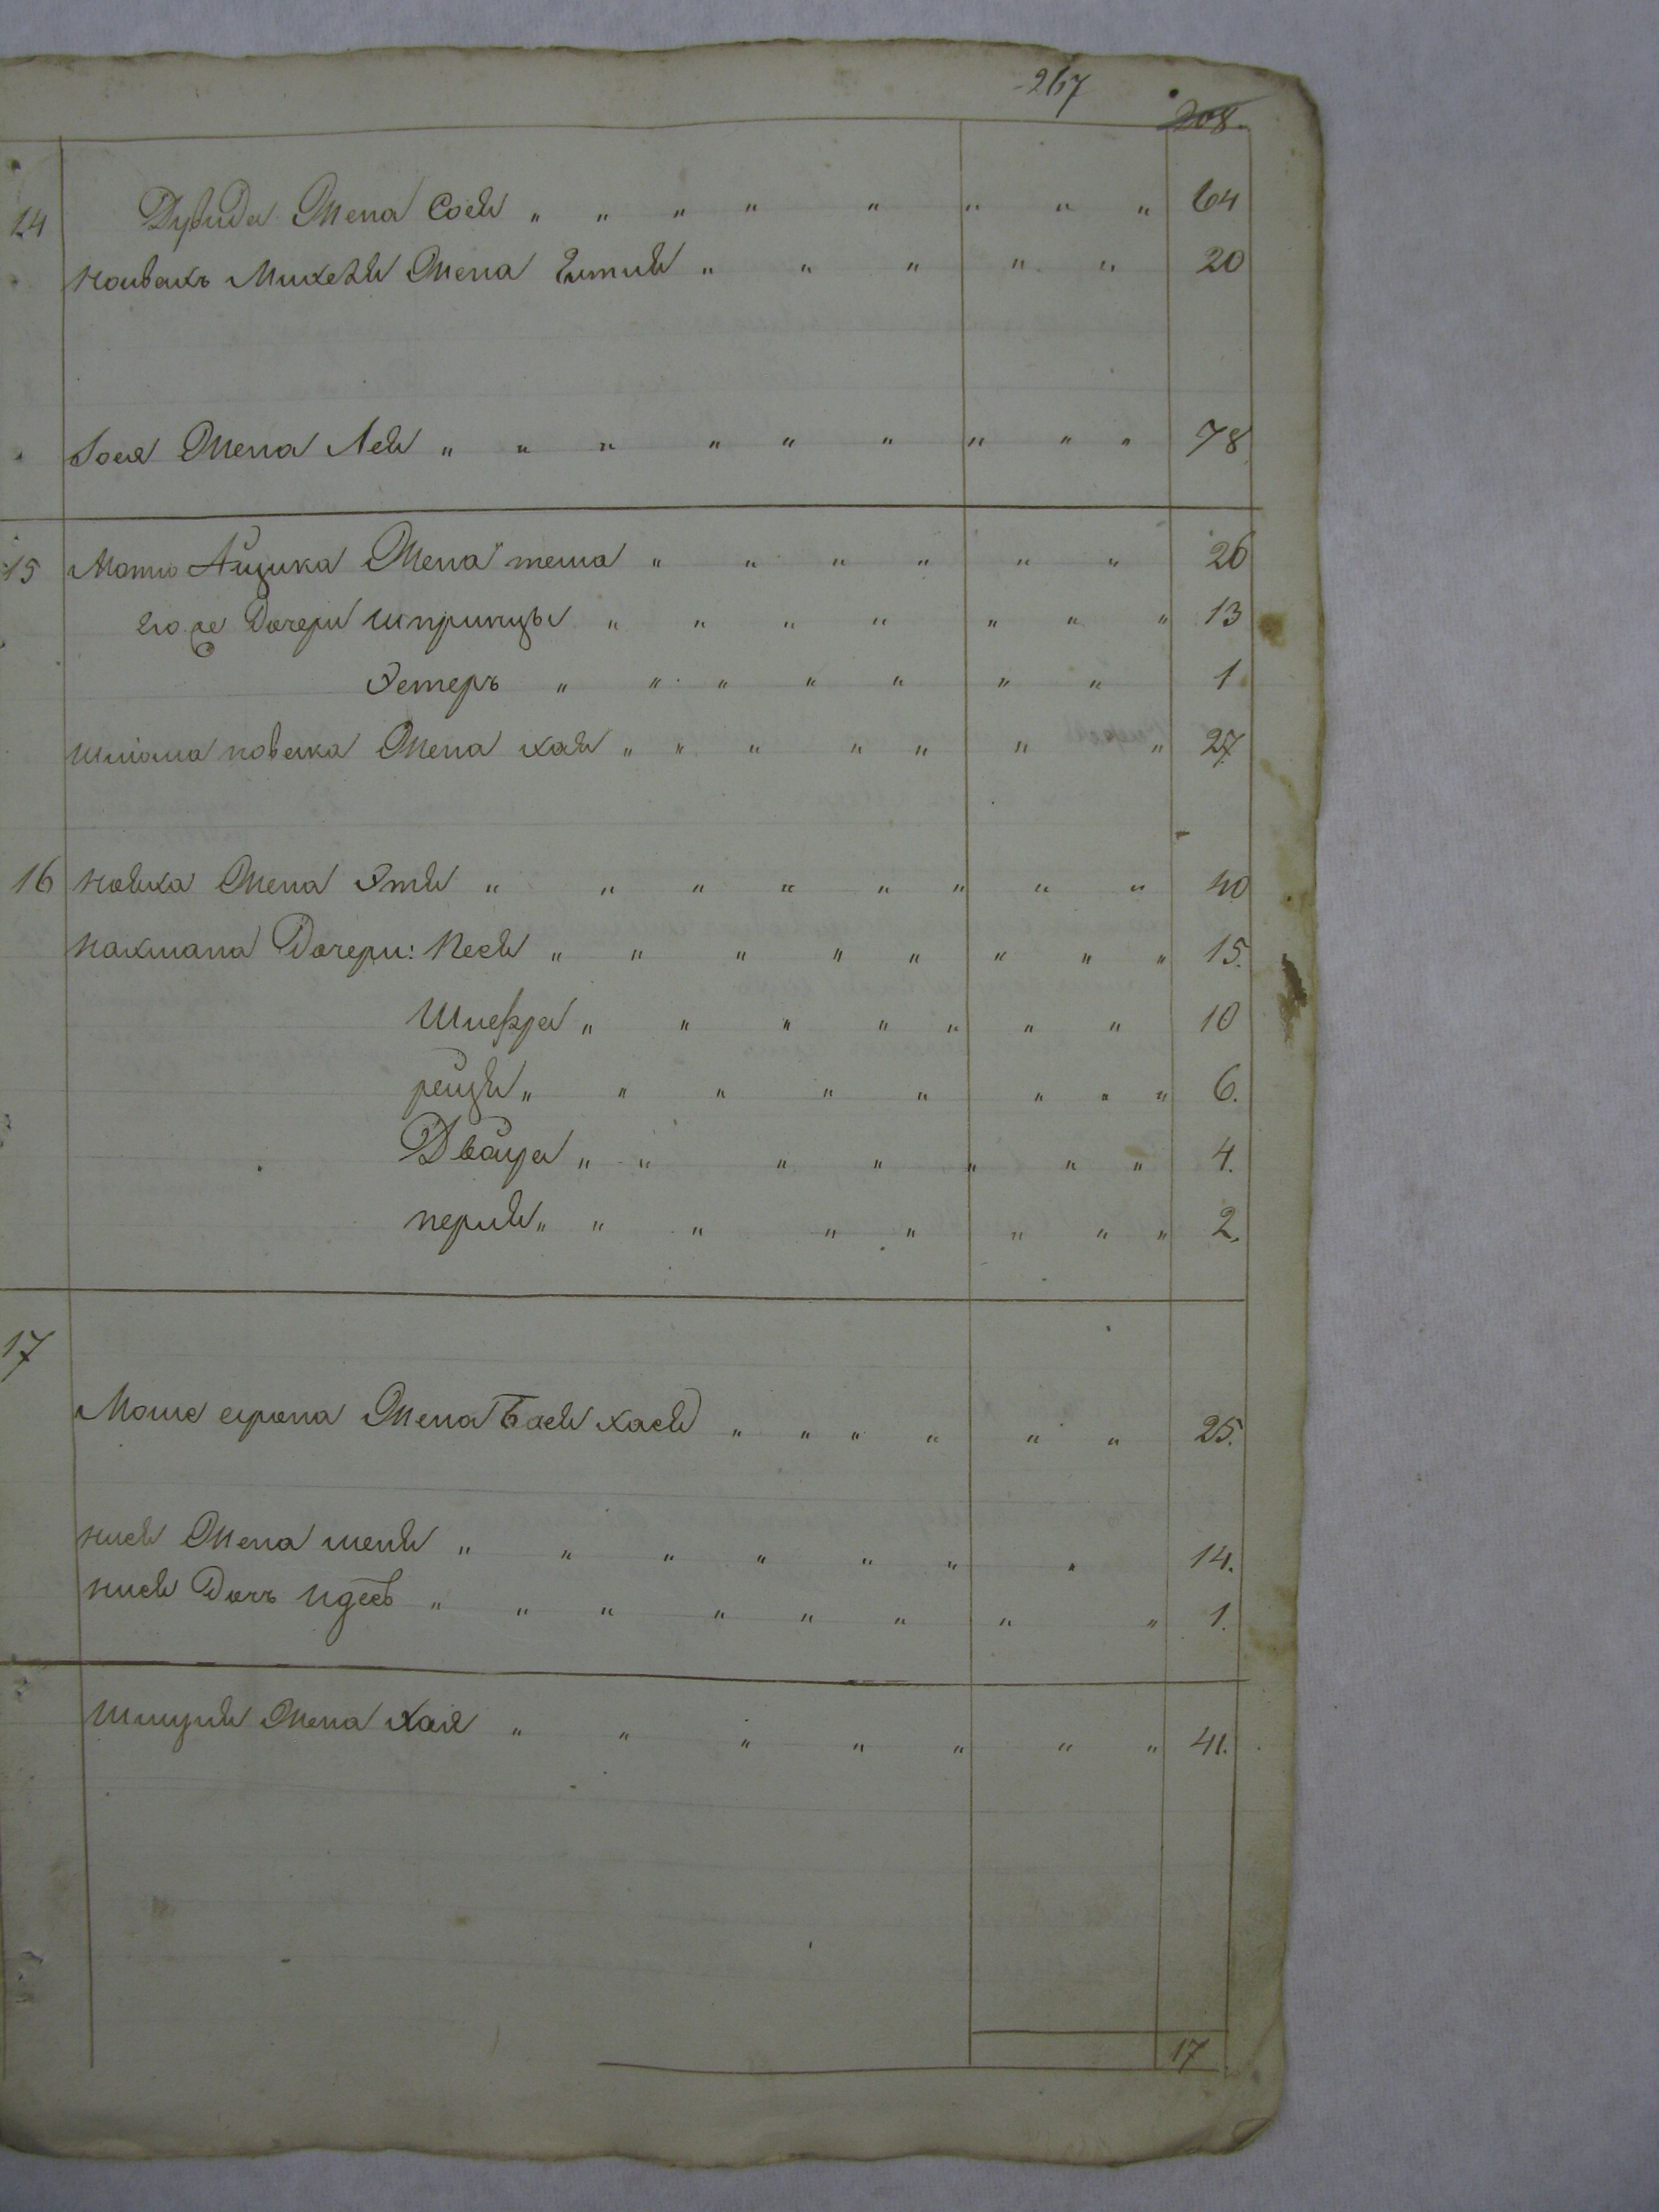 267
208.
14 Дувида Жена Сося " " " " " " " " 64
Новахъ Михеля Жена Гитля " " " " " 20
Жена Лея " " " " " " " " " 78
15 Мотю Аицика Жена теша " " " " " " 26
его же Дочери Шпринцы " " " " " " " 13
Эстеръ " " " " " " " 1
Шлiома новика Жена хая " " " " " " " 27
16 Жена Этя " " " " " " " " 40
Нахмана Дочери: Песя " " " " " " " " 15.
Шифра " " " " " " " 10
рейзя " " " " " " " " 6.
Двойра " " " " " " " 4.
перля " " " " " " " " 2.
17
Мошс арона Жена Бася хася " " " " " " 25.
Жена шеня " " " " " " " 14.
Дочь Идесъ " " " " " " " " 1.
Жена Хая " " " " " " " 41.
17